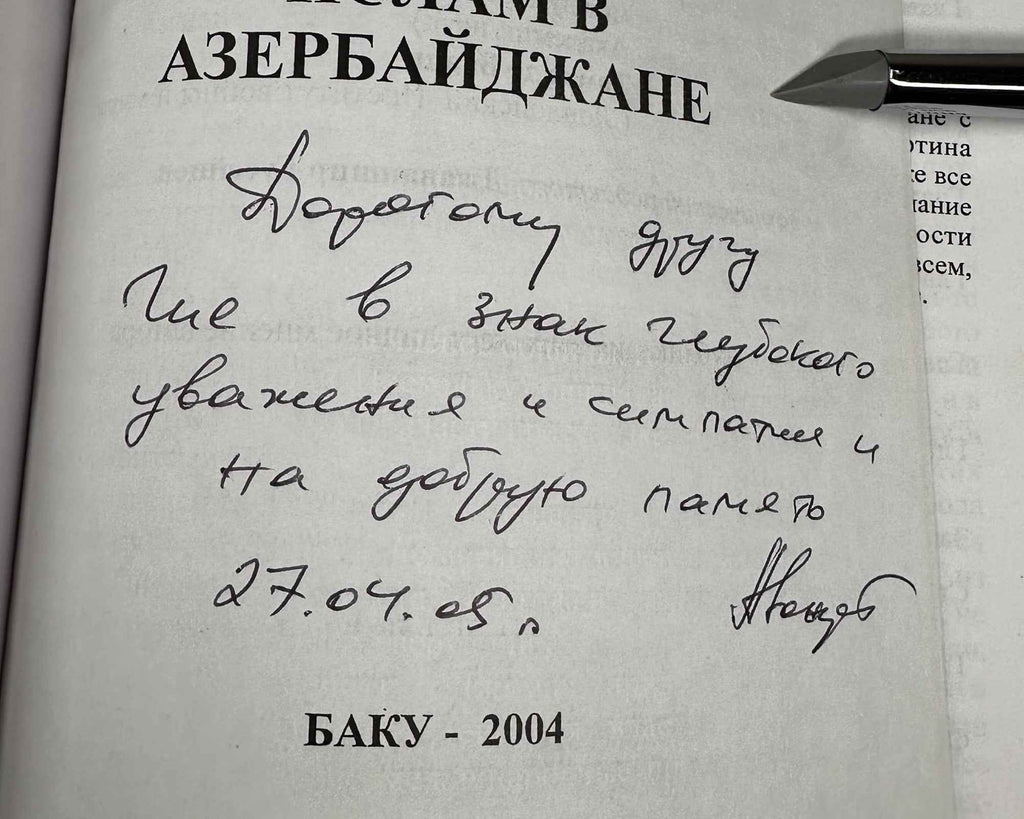 ИСЛАМ В
АЗЕРБАЙДЖАНЕ
Дорогому другу
в знак глубокого
уважения и симпатии и
на добрую память
27.04.05 г.
БАКУ - 2004
ане с
отина
се все
лание
ости
всем,